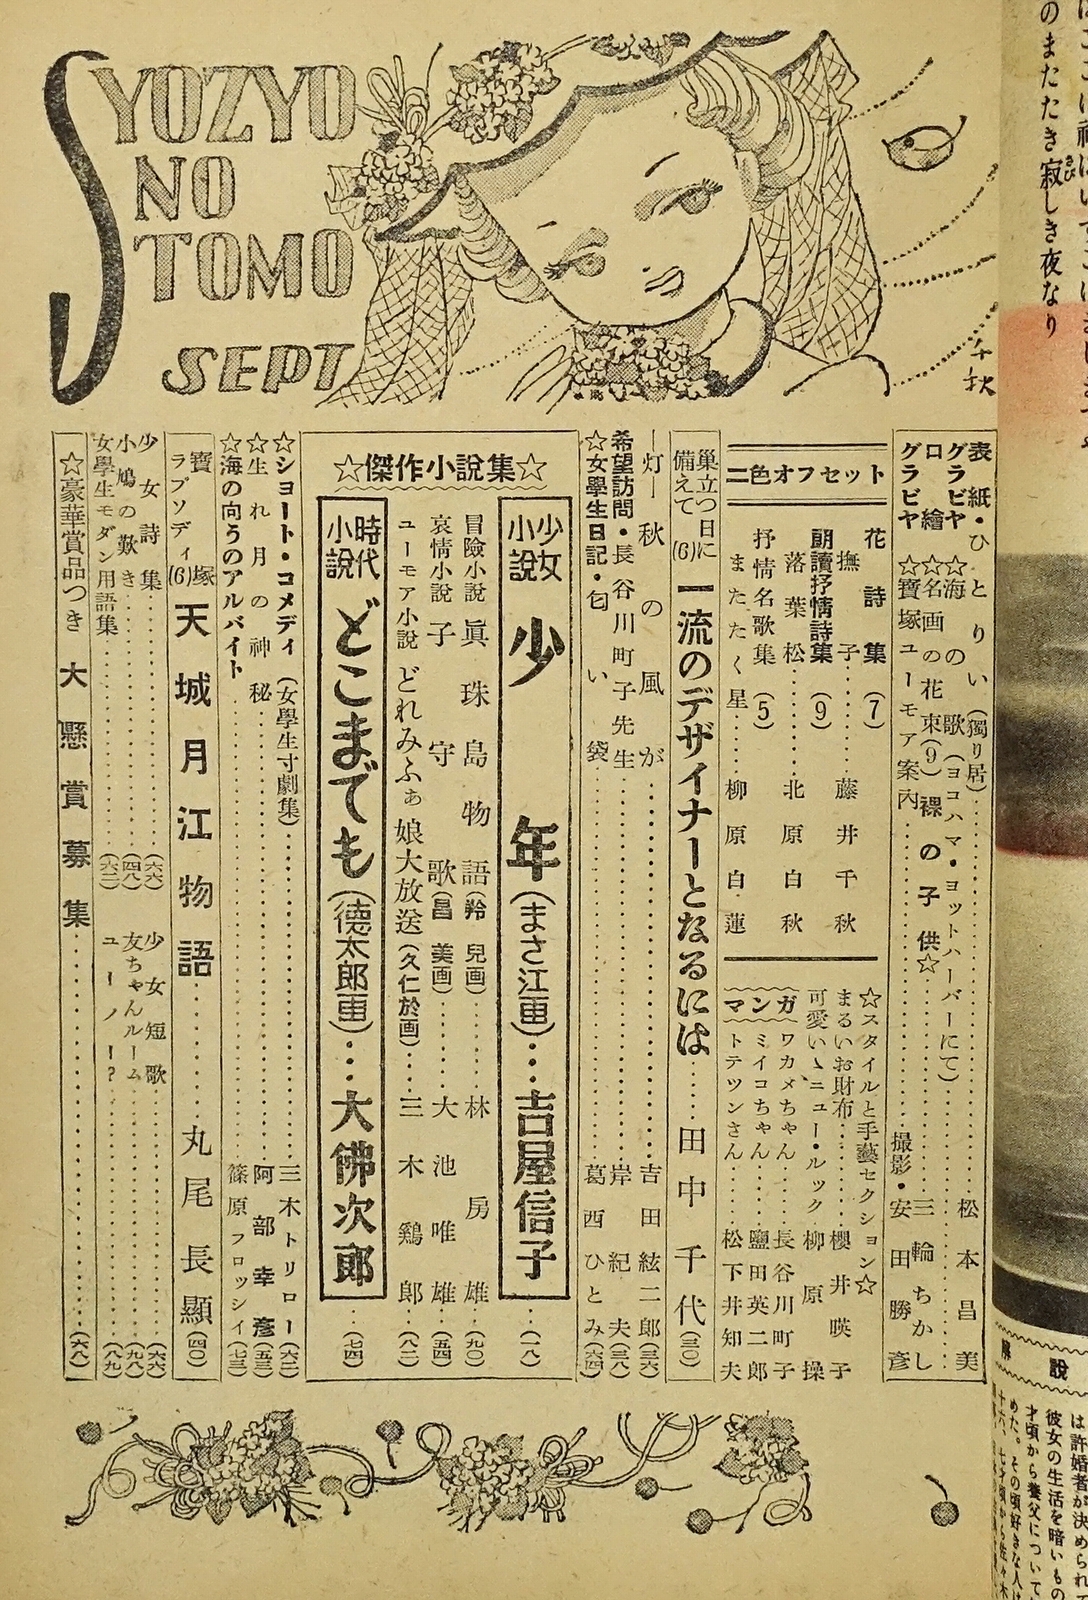 SYOZYO
NO
TOMO
SEPT
千秋
のまたたき寂しき夜なり
表紙・ひとりい(獨り居)……松本昌美
グラビヤ ☆海の歌(ヨコハマ・ヨットハーバーにて)
口繪 ☆名画の花束(9)裸の子供☆……三輪ちかし
グラビヤ ☆寶塚ユーモア案内……撮影・安田勝彥
二色オフセット
花詩集(7)
撫子……藤井千秋
朗讀抒情詩集(9)
落葉松……北原白秋
抒情名歌集(5)
またたく星……柳原白蓮
☆スタイルと手藝セクション☆
まるいお財布……櫻井暎子
可愛いゝニュー・ルック 柳原操
マンガ
ワカメちゃん……長谷川町子
ミイコちゃん……鹽田英二郎
トテツンさん……松下井知夫
巣立つ日に備えて(6)
一流のデザイナーとなるには……田中千代(三〇)
―灯― 秋の風が……吉田絃二郎(三六)
希望訪問・長谷川町子先生……岸紀夫(三八)
☆女學生日記・匂い袋……葛西ひとみ(六四)
☆傑作小説集☆
少女小説 少年(まさ江画)…吉屋信子……(一八)
冒險小説 眞珠島物語(羚兒画)……林房雄(九〇)
哀情小説 子守歌(昌美画)……大池唯雄(五四)
ユーモア小説 どれみふぁ娘大放送(久仁於画)…三木鷄郎……(八二)
時代小説 どこまでも(德太郎画)…大佛次郎……(七四)
☆ショート・コメディ(女學生寸劇集)……三木トリロー(六二)
☆生れ月の神秘……阿部幸彥(五三)
☆海の向うのアルバイト……篠原フロッシイ(七三)
寶塚ラプソディ(6)
天城月江物語……丸尾長顯(四〇)
少女詩集……(六六)
小鳩の歎き……(四八)
女學生モダン用語集……(六三)
少女短歌……(六六)
友ちゃんルーム……(九八)
ユーノー?……(八九)
☆豪華賞品つき 大懸賞募集……(六八)
解説
は許婚者が決められて
彼女の生活を暗いもの
才頃から養父について
めた。その頃好きな人は